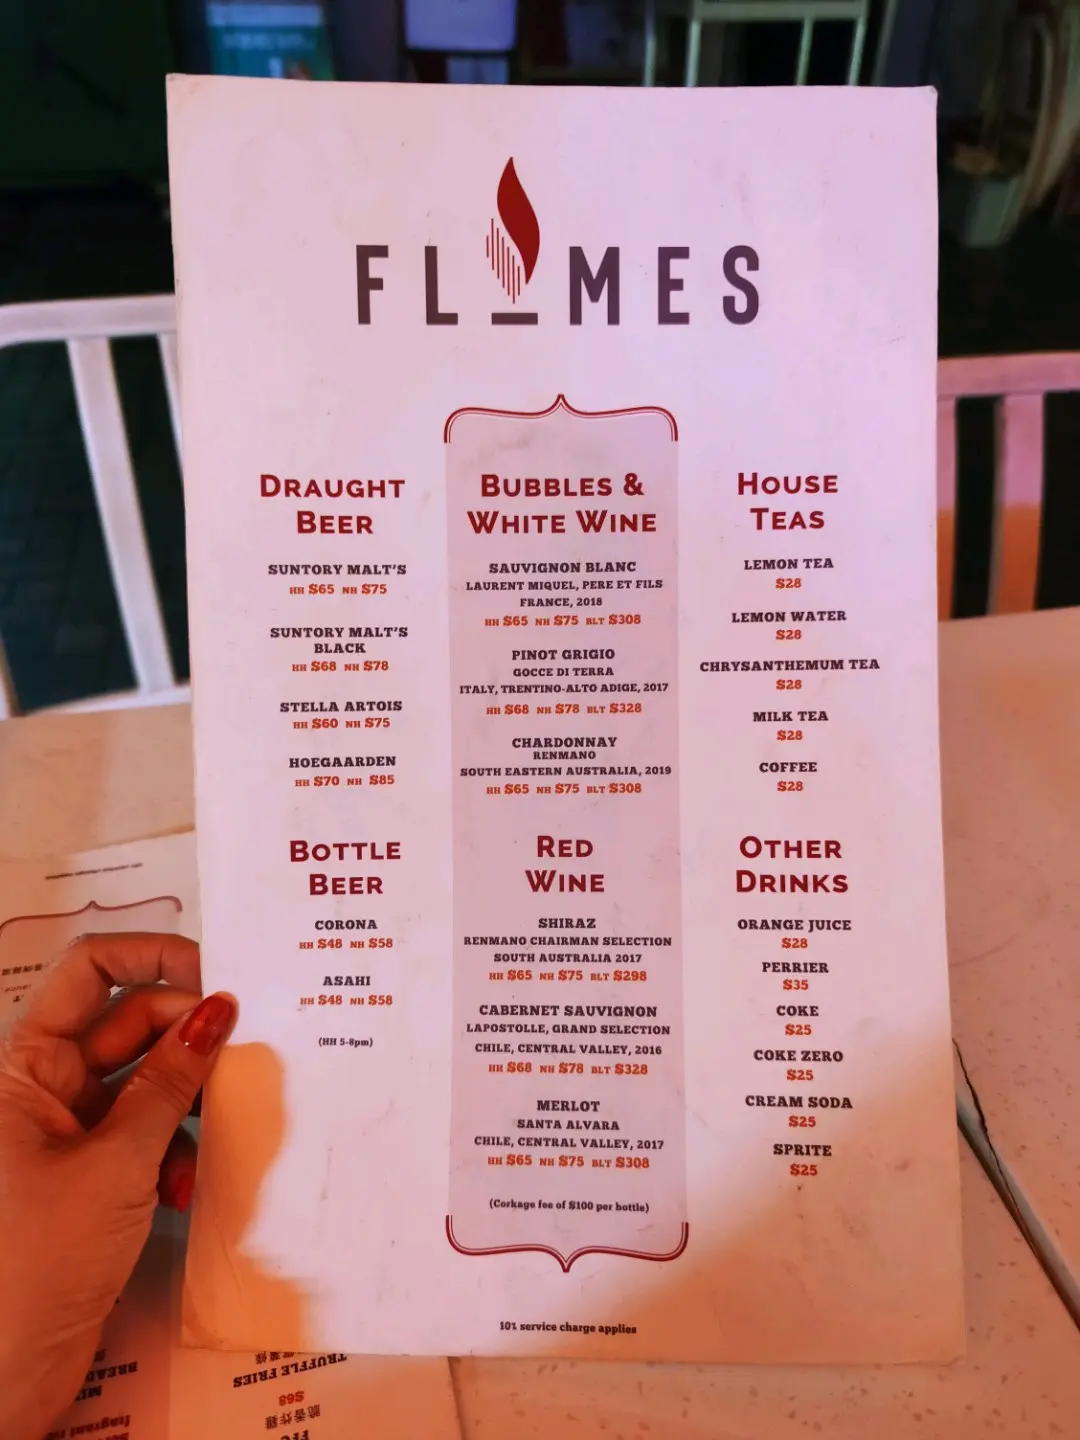 FLAMES
DRAUGHT
BEER
SUNTORY MALT'S
HH $65 NH $75
SUNTORY MALT'S
BLACK
HH $68 NH $78
STELLA ARTOIS
HH $60 NH $75
HOEGAARDEN
HH $70 NH $85
BOTTLE
BEER
CORONA
HH $48 NH $58
ASAHI
HH $48 NH $58
(HH 5-8pm)
BUBBLES &
WHITE WINE
SAUVIGNON BLANC
LAURENT MIQUEL, PERE ET FILS
FRANCE, 2018
HH $65 NH $75 BLT $308
PINOT GRIGIO
GOCCE DI TERRA
ITALY, TRENTINO-ALTO ADIGE, 2017
HH $68 NH $78 BLT $328
CHARDONNAY
RENMANO
SOUTH EASTERN AUSTRALIA, 2019
HH $65 NH $75 BLT $308
RED
WINE
SHIRAZ
RENMANO CHAIRMAN SELECTION
SOUTH AUSTRALIA 2017
HH $65 NH $75 BLT $298
CABERNET SAUVIGNON
LAPOSTOLLE, GRAND SELECTION
CHILE, CENTRAL VALLEY, 2016
HH $68 NH $78 BLT $328
MERLOT
SANTA ALVARA
CHILE, CENTRAL VALLEY, 2017
HH $65 NH $75 BLT $308
(Corkage fee of $100 per bottle)
HOUSE
TEAS
LEMON TEA
$28
LEMON WATER
$28
CHRYSANTHEMUM TEA
$28
MILK TEA
$28
COFFEE
$28
OTHER
DRINKS
ORANGE JUICE
$28
PERRIER
$35
COKE
$25
COKE ZERO
$25
CREAM SODA
$25
SPRITE
$25
10% service charge applies
TRUFFLE FRIES
$68
脆香炸雞